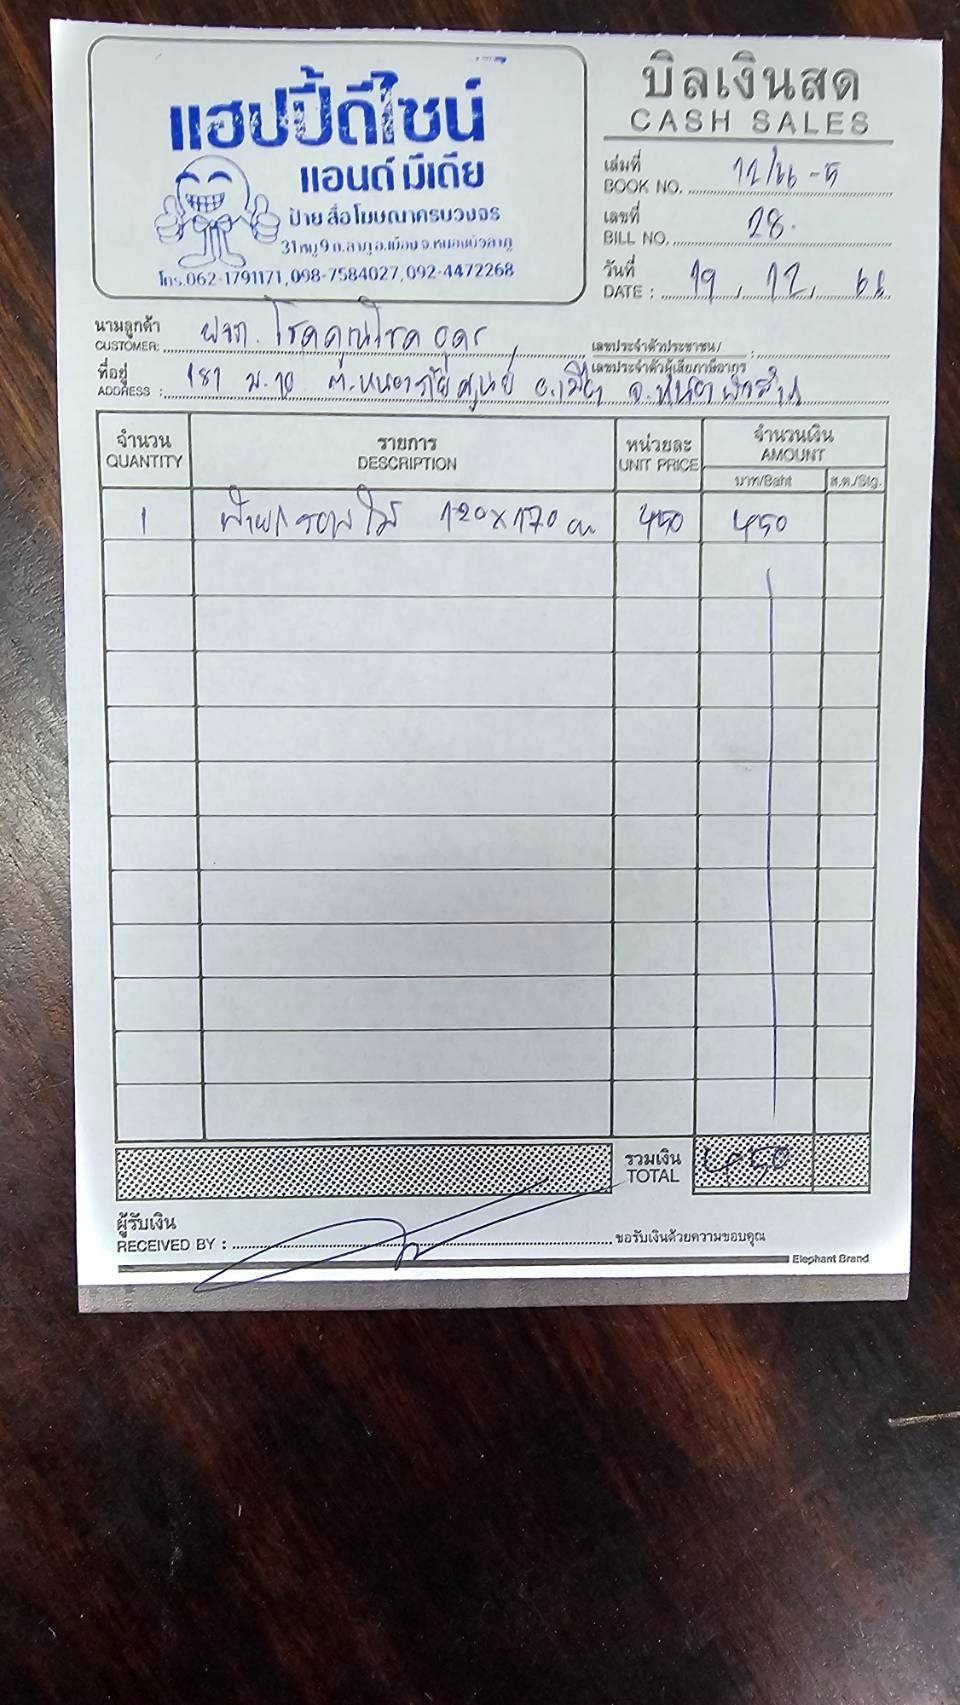 แฮปปี้ดีไซน์
แอนด์ มีเดีย
ป้าย สื่อ โฆษณาครบวงจร
31 หมู่ 9 ต.ลาภู อ.เมือง จ.หนองบัวลาภู
โทร.062-1791171,098-7584027,092-4472268
บิลเงินสด
CASH SALES
เล่มที่
BOOK NO. 12/66-5
เลขที่
BILL NO. 28.
วันที่
DATE : 19, 12, 66
นามลูกค้า
CUSTOMER: หจก. โชคคูณโชค อุดร
เลขประจำตัวประชาชน/
เลขประจำตัวผู้เสียภาษีอากร :
ที่อยู่
ADDRESS : 181 ม.10 ต.หนองภัยศูนย์ อ.เมือง จ.
จำนวน
QUANTITY
รายการ
DESCRIPTION
หน่วยละ
UNIT PRICE
จำนวนเงิน
AMOUNT
บาท/Baht ส.ต./Stg.
1 120x170 cm 450 450
รวมเงิน
TOTAL 450
ผู้รับเงิน
RECEIVED BY :
ขอรับเงินด้วยความขอบคุณ
Elephant Brand